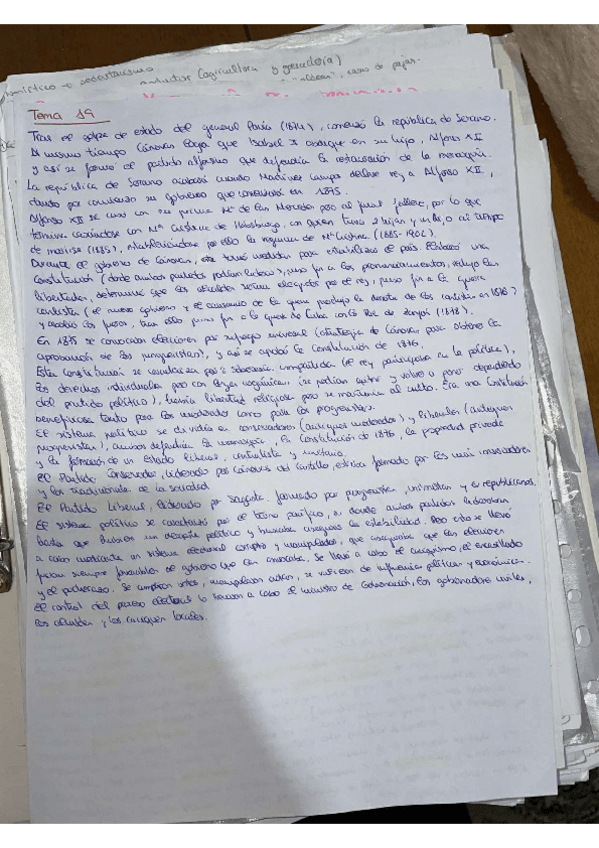 conductor (agricultura y ganadería)
Tema 19
Tras el golpe de estado del general Pavía (1874), comenzó la república de Serano.
Al mismo tiempo Cánovas logra que Isabel II abdique en su hijo, Alfonso XII
y así se formó el partido alfonsino que defendía la restauración de la monarquía.
La república de Serano acabará cuando Martínez Campos declare rey a Alfonso XII,
dando por comienzo su gobierno que comenzará en 1875.
Alfonso XII se casa con su prima Mª de las Mercedes pero al final fallece, por lo que
termina casándose con Mª Cristina de Habsburgo, con quien tuvo 2 hijas y un hijo, o al tiempo
de morirse (1885), estableciéndose por ello la regencia de Mª Cristina (1885-1902).
Durante el gobierno de Cánovas, este tomó medidas para estabilizar el país. Elaboró una
Constitución (donde ambos partidos podían), puso fin a los pronunciamientos, redujo las
libertades, determinó que los alcaldes serían elegidos por el rey, puso fin a la guerra
carlista (el nuevo gobierno y el cansancio de la guerra produjo la derrota de los carlistas en 1876)
y acabó los fueros, tras ello puso fin a la guerra de Cuba con la Paz de Zanjón (1878).
En 1875 se convocaron elecciones por sufragio universal (estrategia de Cánovas para obtener la
aprobación de los progresistas), y así se aprobó la Constitución de 1876.
Esta constitución se caracteriza por: soberanía compartida (el rey participaba en la política),
los derechos individuales pero con leyes orgánicas (se podían quitar y volver a poner dependiendo
del partido político), había libertad religiosa pero se mantenía al culto. Era una Constitución
beneficiosa tanto para los moderados como para los progresistas.
El sistema político se dividía en conservadores (antiguos moderados) y liberales (antiguos
progresistas), ambos defendían la monarquía, la Constitución de 1876, la propiedad privada
y la formación de un estado liberal, centralista y unitario.
El Partido Conservador, liderado por Cánovas del Castillo, estaba formado por los más inmovilistas
y los tradicionales de la sociedad.
El Partido Liberal, liderado por Sagasta, formado por progresistas, unionistas y ex republicanos.
El sistema político se caracterizó por el turno pacífico, en donde ambos partidos lideraban
hasta que hubiese un desgaste político y buscaba asegurar la estabilidad. Pero esto se llevó
a cabo mediante un sistema electoral corrupto y manipulado, que aseguraba que las elecciones
fueran siempre favorables al gobierno que las convocaba. Se llevó a cabo el caciquismo, el encasillado
y el pucherazo. Se compraban votos, manipulaban actas, se valieron de influencias políticas y económicas.
El control del proceso electoral lo llevaron a cabo el ministro de Gobernación, los gobernadores civiles,
los alcaldes y los caciques locales.